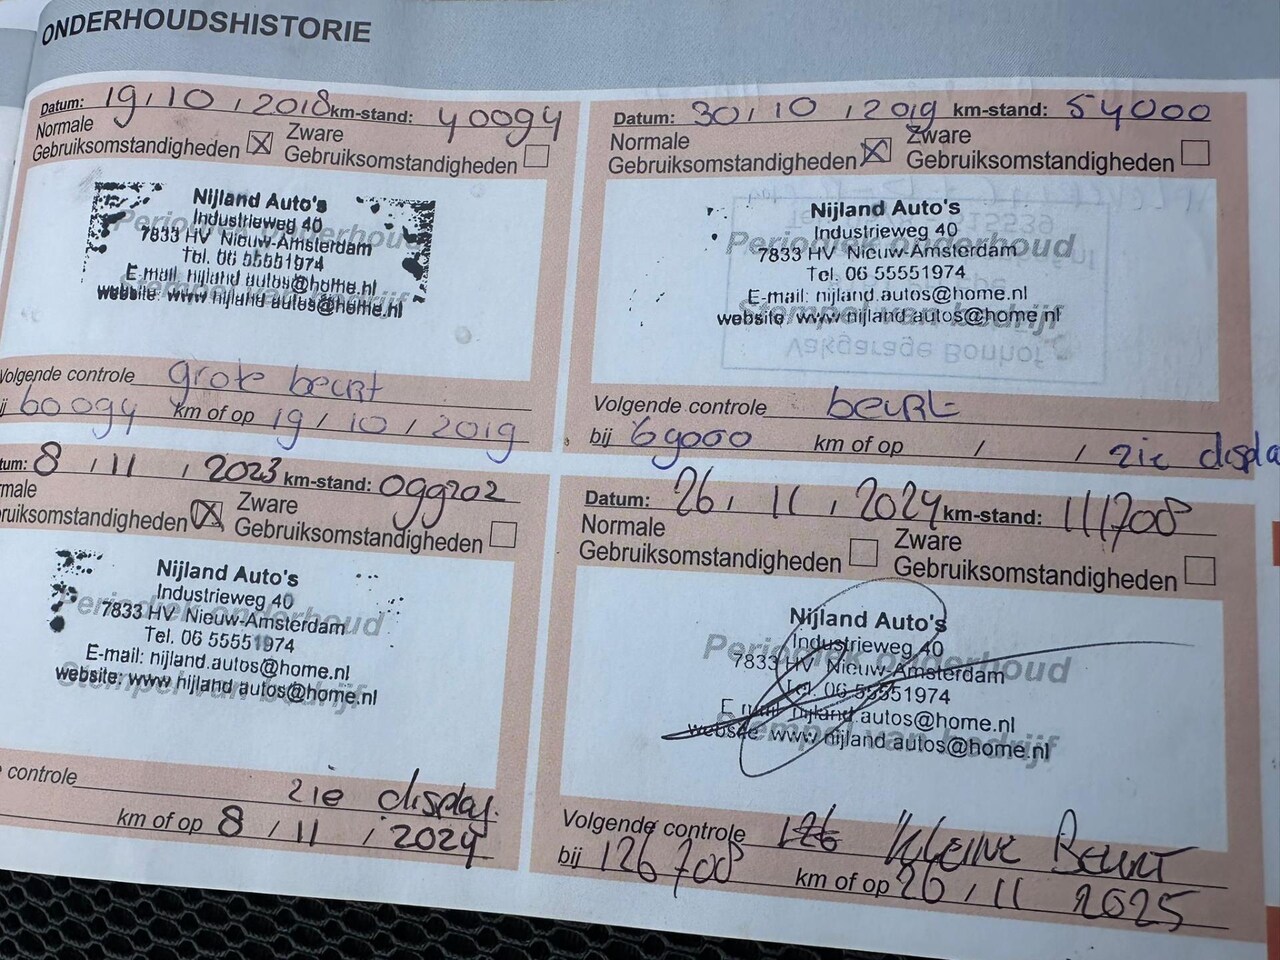 ONDERHOUDSHISTORIE
Datum: 19 / 10 / 2018 km-stand: 40094
Normale Gebruiksomstandigheden ☒ Zware Gebruiksomstandigheden ☐
Periodiek onderhoud
Stempel van bedrijf
Nijland Auto's
Industrieweg 40
7833 HV Nieuw-Amsterdam
Tel. 06 55551974
E-mail: nijland.autos@home.nl
website: www.nijland.autos@home.nl
Volgende controle grote beurt
60094 km of op 19 / 10 / 2019
Datum: 30 / 10 / 2019 km-stand: 54000
Normale Gebruiksomstandigheden ☒ Zware Gebruiksomstandigheden ☐
Periodiek onderhoud
Stempel van bedrijf
Nijland Auto's
Industrieweg 40
7833 HV Nieuw-Amsterdam
Tel. 06 55551974
E-mail: nijland.autos@home.nl
website: www.nijland.autos@home.nl
Vakgarage Bonhof
Volgende controle beurt
bij 69000 km of op / / zie displa
tum: 8 / 11 / 2023 km-stand: 099202
male
ruiksomstandigheden ☒ Zware Gebruiksomstandigheden ☐
Periodiek onderhoud
Stempel van bedrijf
Nijland Auto's
Industrieweg 40
7833 HV Nieuw-Amsterdam
Tel. 06 55551974
E-mail: nijland.autos@home.nl
website: www.nijland.autos@home.nl
controle zie display.
km of op 8 / 11 / 2024
Datum: 26 / 11 / 2024 km-stand: 111708
Normale Gebruiksomstandigheden ☐ Zware Gebruiksomstandigheden ☐
Periodiek onderhoud
Stempel van bedrijf
Nijland Auto's
Industrieweg 40
7833 HV Nieuw-Amsterdam
Tel. 06 55551974
E-mail: nijland.autos@home.nl
website www.nijland.autos@home.nl
Volgende controle 126 Kleine Beurt
bij 126708 km of op 26 / 11 2025